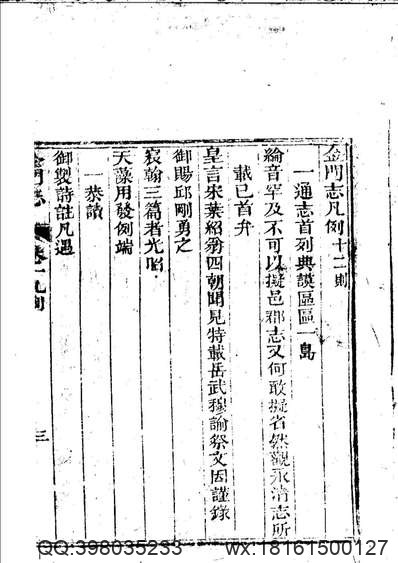 金門志凡例十二則
一通志首列典謨區區一島
綸音罕及不可以擬邑郡志又何敢擬省然觀永清志所
載已首弁
皇言宋葉紹翁四朝聞見特載岳武穆諭祭文因謹錄
御賜邱剛勇之
宸翰三篇者光昭
天藻用發例端
一恭讀
御製詩註凡遇
金門志 卷一凡例 三
QQ:398035233 wx:18161500127